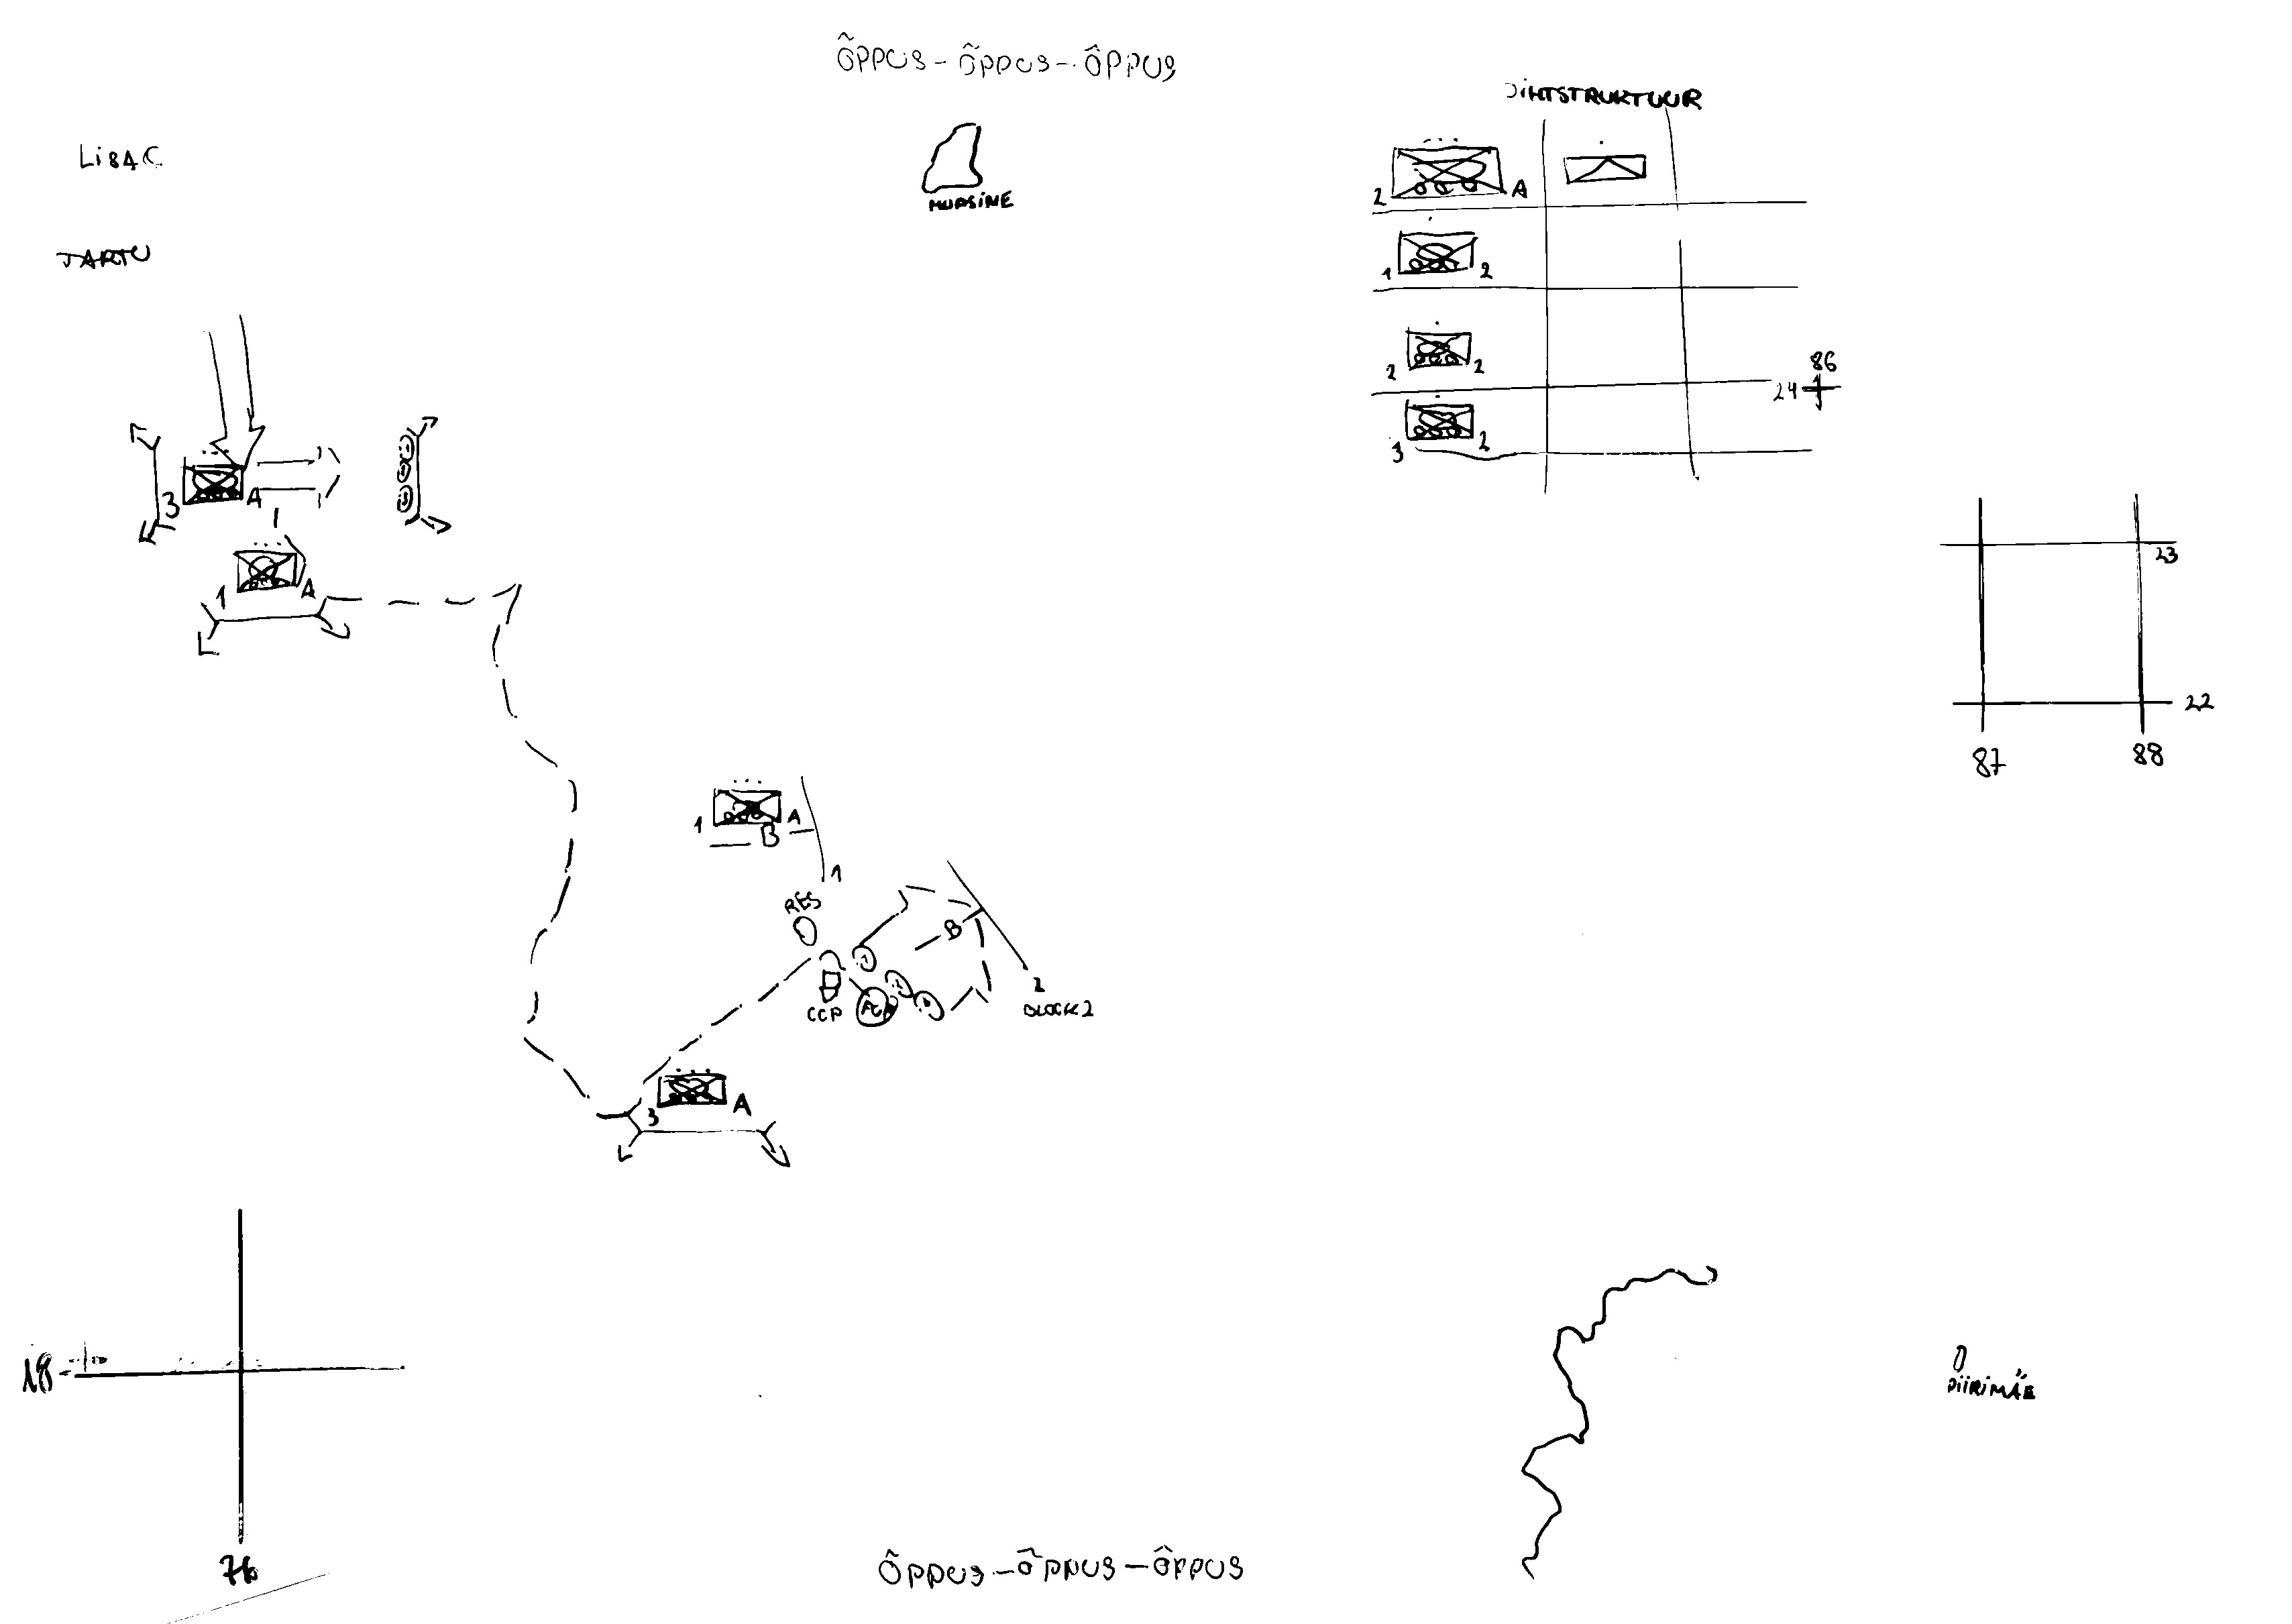 ÕPPUS - ÕPPUS - ÕPPUS
LISA C
TARTU
MURSINE
SIHTSTRUKTUUR
2 A
1 2
2 2
3 2
86
24
3 A
1 A
23
22
87 88
1 A
B
1
RES
B
1
2
3
CCP
2
BLOCK 2
3 A
18
76
PIIRIMÄE
ÕPPUS - ÕPPUS - ÕPPUS